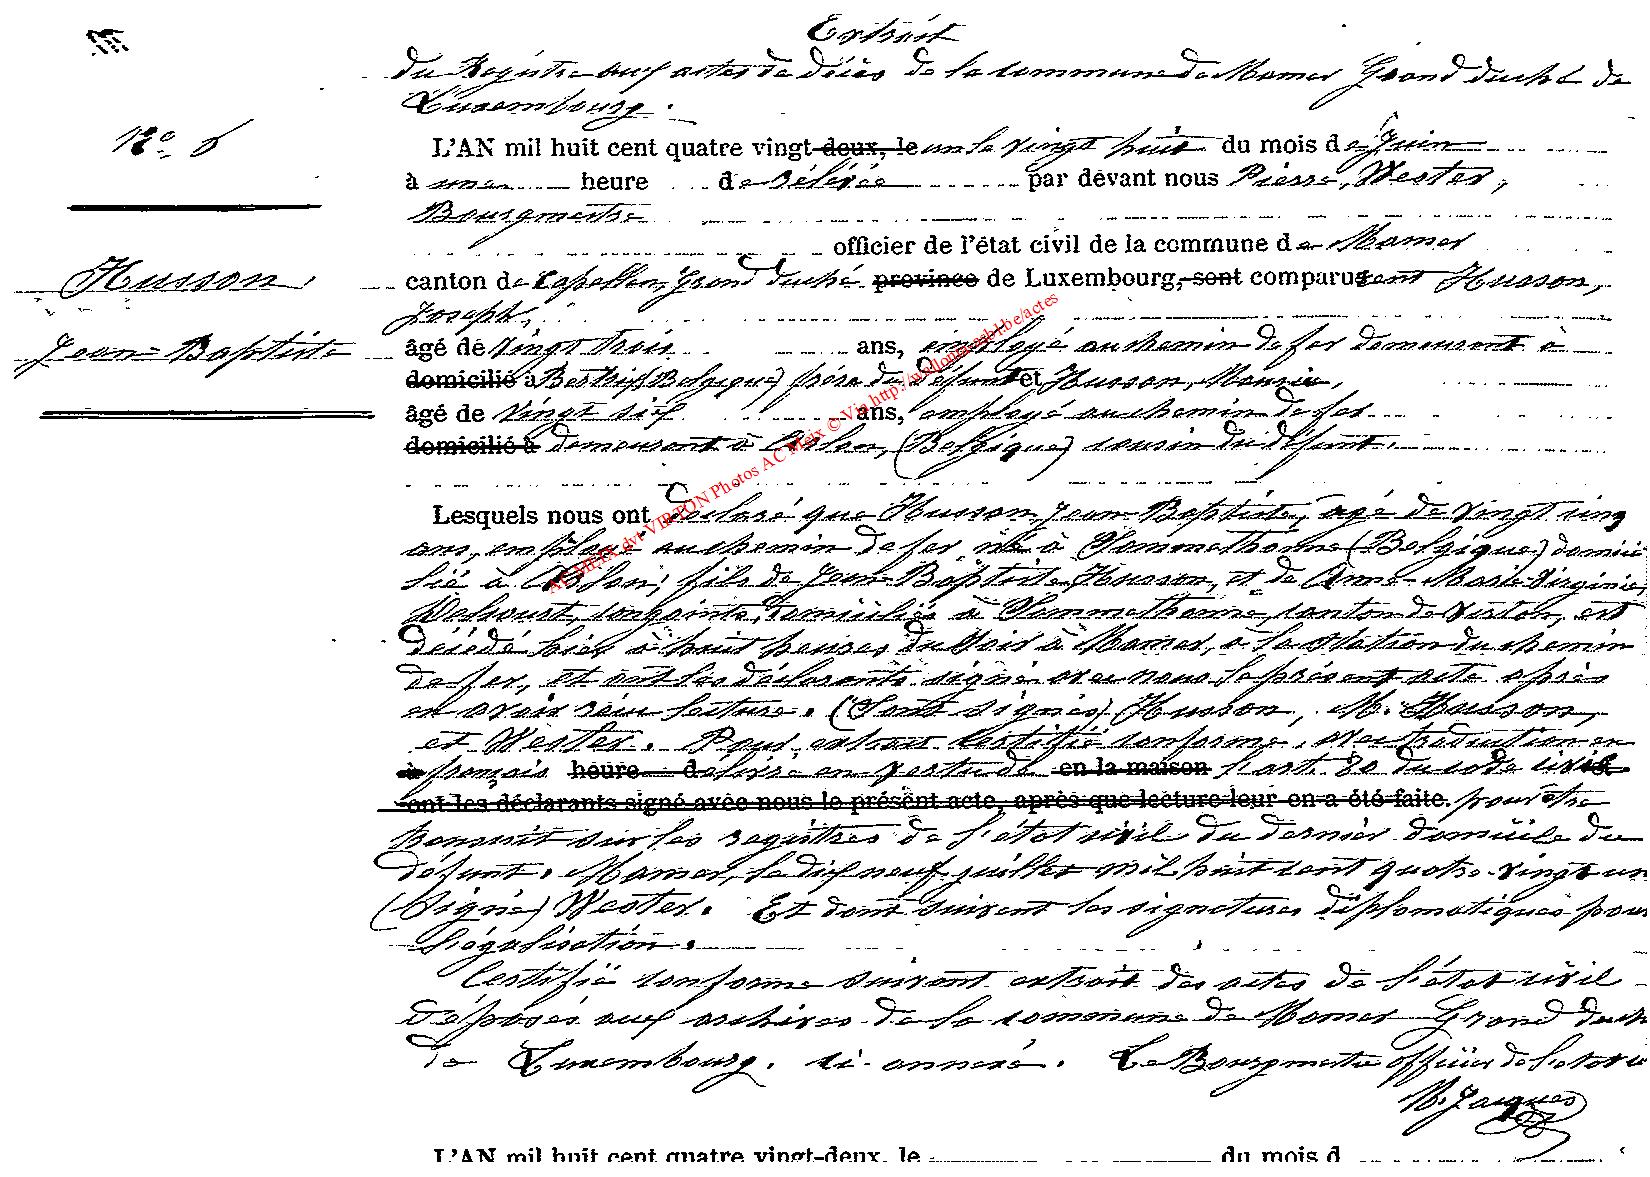 Extrait
du Registre aux actes de décès de la commune de Mamer Grand duché de
Luxembourg.
N° 6
L'AN mil huit cent quatre vingt deux, le un le vingt huit du mois de Juin
à une heure de relevée par devant nous Pierre, Wester,
Bourgmestre
officier de l'état civil de la commune de Mamer
Husson,
canton de Capellen, Grand duché province de Luxembourg, sont comparurent Husson,
Joseph,
Jean-Baptiste
âgé de vingt trois ans, employé au chemin de fer demeurant à
domicilié à Bertrix (Belgique) frère du défunt et Husson,
âgé de vingt six ans, employé au chemin de fer
domicilié à demeurant à Arlon, (Belgique) cousin du défunt.
Lesquels nous ont déclaré que Husson, Jean-Baptiste, âgé de vingt cinq
ans, employé au chemin de fer né à Sommethonne (Belgique) domici
lié à Arlon, fils de Jean-Baptiste Husson, et de Anne-Marie Virginie
conjoints, domiciliés à Sommethonne, canton de Virton, est
décédé hier à huit heures du soir à Mamer, à la station du chemin
de fer, et ont les déclarants signé avec nous le présent acte après
en avoir reçu lecture. (Sont signés) Husson, M. Husson,
et Wester. Pour extrait certifié conforme, avec traduction en
à français heure d délivré en vertu de en la maison l'art. 80 du code civil
ont les déclarants signé avec nous le présent acte, après que lecture leur en a été faite. pour être
transcrit sur les registres de l'état civil du dernier domicile du
défunt. Mamer, le dix neuf juillet mil huit cent quatre-vingt un
(Signé) Wester. Et dont suivent les signatures diplomatiques pour
légalisation.
Certifié conforme suivant extrait des actes de l'état civil
déposés aux archives de la commune de Mamer Grand duché
de Luxembourg. ci-annexé. Le Bourgmestre officier de l'état ci
N. Jacques
L'AN mil huit cent quatre vingt-deux, le du mois d
VIRTON Photos AC Meix © Via http://